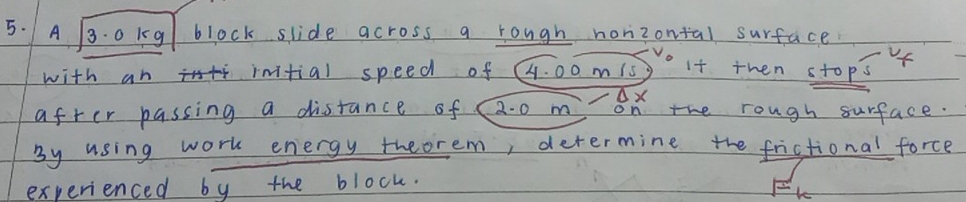 5. A 3.0 kg block slide across a rough honzontal surface
with an inti initial speed of 4.00 m/s V₀ It then stops Vf
after passing a distance of 2.0 m Δx on the rough surface.
By using work energy theorem, determine the frictional force
experienced by the block. Fk